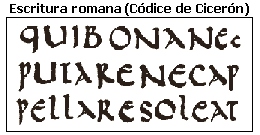 Escritura romana (Códice de Cicerón)
QUIBONANEC
PUTARENECAP
PELLARESOLEAT